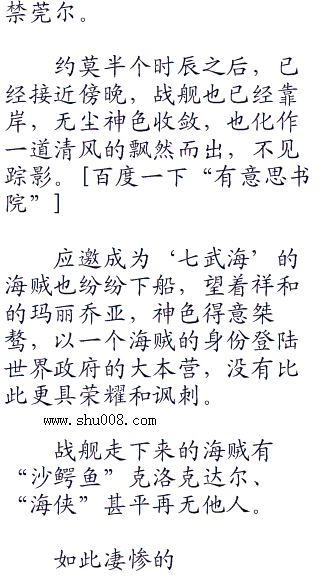 禁莞尔。
约莫半个时辰之后，已
经接近傍晚，战舰也已经靠
岸，无尘神色收敛，也化作
一道清风的飘然而出，不见
踪影。[百度一下“有意思书
院”]
应邀成为‘七武海’的
海贼也纷纷下船，望着祥和
的玛丽乔亚，神色得意桀
骜，以一个海贼的身份登陆
世界政府的大本营，没有比
此更具荣耀和讽刺。
www.shu008.com
战舰走下来的海贼有
“沙鳄鱼”克洛克达尔、
“海侠”甚平再无他人。
如此凄惨的